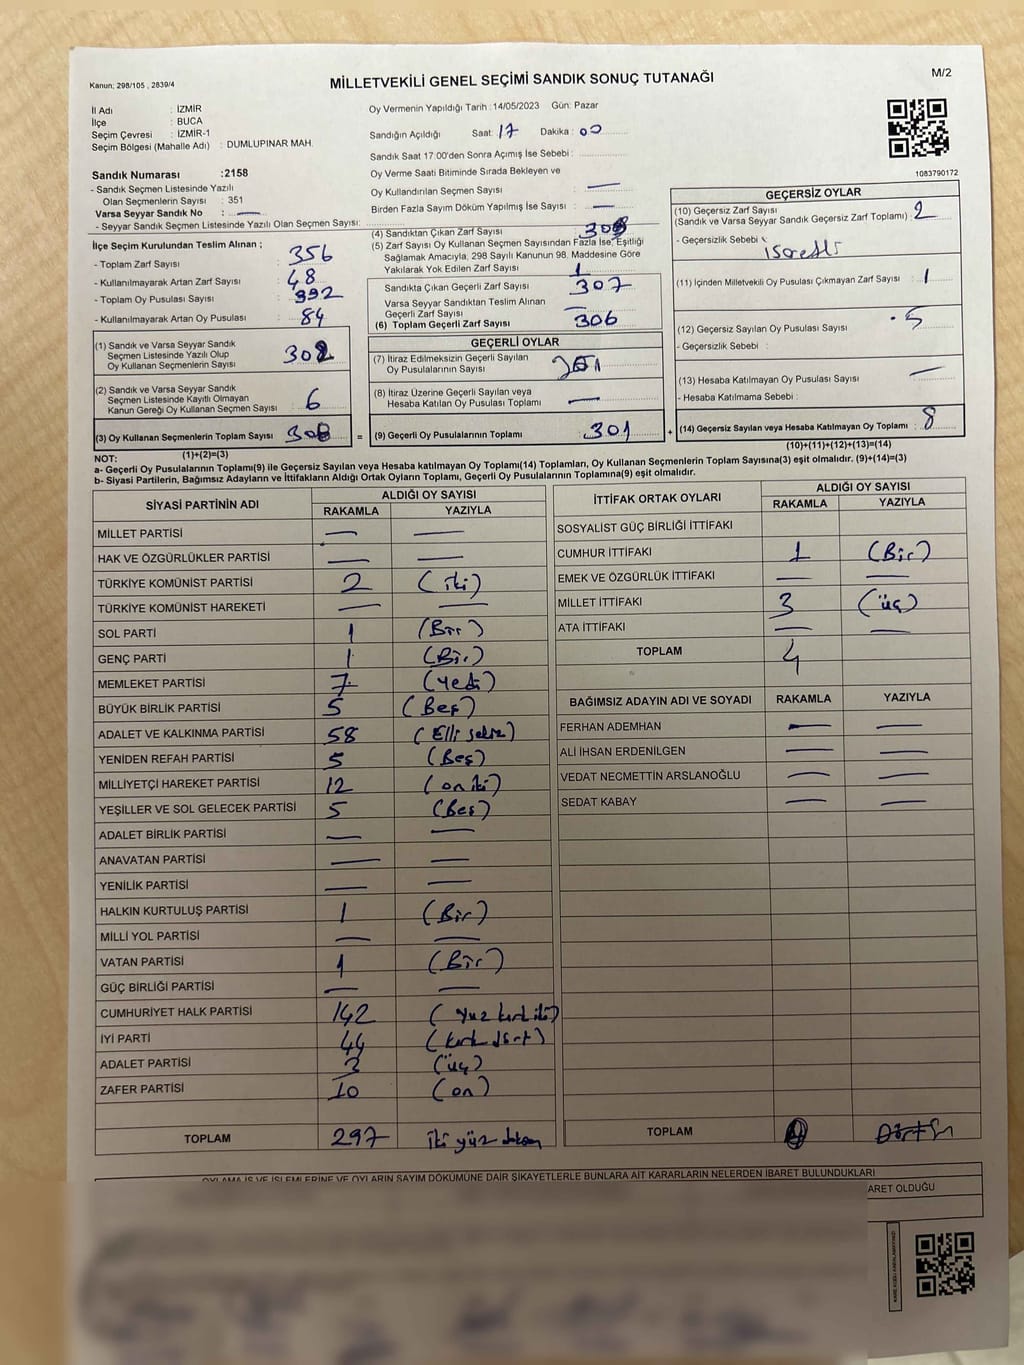 Kanun; 298/105 , 2839/4
MİLLETVEKİLİ GENEL SEÇİMİ SANDIK SONUÇ TUTANAĞI
M/2
İl Adı : İZMİR
İlçe : BUCA
Seçim Çevresi : İZMİR-1
Seçim Bölgesi (Mahalle Adı) : DUMLUPINAR MAH.
Oy Vermenin Yapıldığı Tarih :14/05/2023 Gün: Pazar
Sandığın Açıldığı Saat: 17 Dakika : 00
Sandık Saat 17.00'den Sonra Açımış İse Sebebi :
Oy Verme Saati Bitiminde Sırada Bekleyen ve
Oy Kullandırılan Seçmen Sayısı : —
Birden Fazla Sayım Döküm Yapılmış İse Sayısı : —
1083790172
Sandık Numarası :2158
- Sandık Seçmen Listesinde Yazılı
Olan Seçmenlerin Sayısı : 351
Varsa Seyyar Sandık No : —
- Seyyar Sandık Seçmen Listesinde Yazılı Olan Seçmen Sayısı:
İlçe Seçim Kurulundan Teslim Alınan ;
- Toplam Zarf Sayısı : 356
- Kullanılmayarak Artan Zarf Sayısı : 48
- Toplam Oy Pusulası Sayısı : 392
- Kullanılmayarak Artan Oy Pusulası : 84
(1) Sandık ve Varsa Seyyar Sandık
Seçmen Listesinde Yazılı Olup
Oy Kullanan Seçmenlerin Sayısı : 302
(2) Sandık ve Varsa Seyyar Sandık
Seçmen Listesinde Kayıtlı Olmayan
Kanun Gereği Oy Kullanan Seçmen Sayısı : 6
(3) Oy Kullanan Seçmenlerin Toplam Sayısı : 308
(1)+(2)=(3)
(4) Sandıktan Çıkan Zarf Sayısı : 308
(5) Zarf Sayısı Oy Kullanan Seçmen Sayısından Fazla İse; Eşitliği
Sağlamak Amacıyla, 298 Sayılı Kanunun 98. Maddesine Göre
Yakılarak Yok Edilen Zarf Sayısı : 1
Sandıkta Çıkan Geçerli Zarf Sayısı : 307
Varsa Seyyar Sandıktan Teslim Alınan
Geçerli Zarf Sayısı :
(6) Toplam Geçerli Zarf Sayısı : 306
GEÇERLİ OYLAR
(7) İtiraz Edilmeksizin Geçerli Sayılan
Oy Pusulalarının Sayısı :
(8) İtiraz Üzerine Geçerli Sayılan veya
Hesaba Katılan Oy Pusulası Toplamı : —
= (9) Geçerli Oy Pusulalarının Toplamı : 301
GEÇERSİZ OYLAR
(10) Geçersiz Zarf Sayısı
(Sandık ve Varsa Seyyar Sandık Geçersiz Zarf Toplamı) : 2
- Geçersizlik Sebebi :
(11) İçinden Milletvekili Oy Pusulası Çıkmayan Zarf Sayısı : 1
(12) Geçersiz Sayılan Oy Pusulası Sayısı : 5
- Geçersizlik Sebebi :
(13) Hesaba Katılmayan Oy Pusulası Sayısı : —
- Hesaba Katılmama Sebebi :
+ (14) Geçersiz Sayılan veya Hesaba Katılmayan Oy Toplamı : 8
(10)+(11)+(12)+(13)=(14)
NOT:
a- Geçerli Oy Pusulalarının Toplamı(9) ile Geçersiz Sayılan veya Hesaba katılmayan Oy Toplamı(14) Toplamları, Oy Kullanan Seçmenlerin Toplam Sayısına(3) eşit olmalıdır. (9)+(14)=(3)
b- Siyasi Partilerin, Bağımsız Adayların ve İttifakların Aldığı Ortak Oyların Toplamı, Geçerli Oy Pusulalarının Toplamına(9) eşit olmalıdır.
SİYASİ PARTİNİN ADI ALDIĞI OY SAYISI
RAKAMLA YAZIYLA
MİLLET PARTİSİ — —
HAK VE ÖZGÜRLÜKLER PARTİSİ — —
TÜRKİYE KOMÜNİST PARTİSİ 2 (iki)
TÜRKİYE KOMÜNİST HAREKETİ — —
SOL PARTİ 1 (Bir)
GENÇ PARTİ 1 (Bir)
MEMLEKET PARTİSİ 7 (Yedi)
BÜYÜK BİRLİK PARTİSİ 5 (Beş)
ADALET VE KALKINMA PARTİSİ 58 (Elli sekiz)
YENİDEN REFAH PARTİSİ 5 (Beş)
MİLLİYETÇİ HAREKET PARTİSİ 12 (on iki)
YEŞİLLER VE SOL GELECEK PARTİSİ 5 (Beş)
ADALET BİRLİK PARTİSİ — —
ANAVATAN PARTİSİ — —
YENİLİK PARTİSİ — —
HALKIN KURTULUŞ PARTİSİ 1 (Bir)
MİLLİ YOL PARTİSİ — —
VATAN PARTİSİ 1 (Bir)
GÜÇ BİRLİĞİ PARTİSİ — —
CUMHURİYET HALK PARTİSİ 142 (Yüz kırk iki)
İYİ PARTİ 44 (kırk dört)
ADALET PARTİSİ 3 (üç)
ZAFER PARTİSİ 10 (on)
TOPLAM 297 iki yüz doksan
İTTİFAK ORTAK OYLARI ALDIĞI OY SAYISI
RAKAMLA YAZIYLA
SOSYALİST GÜÇ BİRLİĞİ İTTİFAKI
CUMHUR İTTİFAKI 1 (Bir)
EMEK VE ÖZGÜRLÜK İTTİFAKI — —
MİLLET İTTİFAKI 3 (üç)
ATA İTTİFAKI — —
TOPLAM 4
BAĞIMSIZ ADAYIN ADI VE SOYADI RAKAMLA YAZIYLA
FERHAN ADEMHAN — —
ALİ İHSAN ERDENİLGEN — —
VEDAT NECMETTİN ARSLANOĞLU — —
SEDAT KABAY — —
TOPLAM
OYLAMA İŞ VE İŞLEMLERİNE VE OYLARIN SAYIM DÖKÜMÜNE DAİR ŞİKAYETLERLE BUNLARA AİT KARARLARIN NELERDEN İBARET BULUNDUKLARI
ARET OLDUĞU